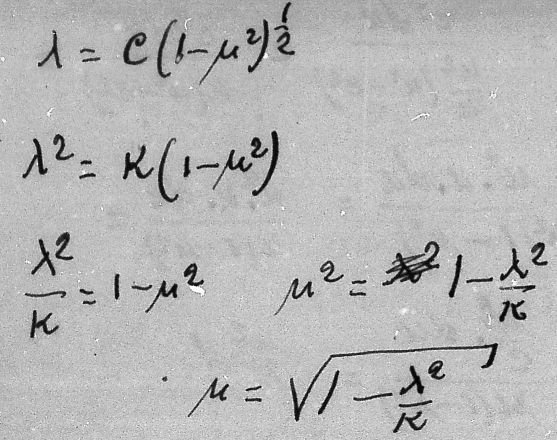 λ = c(1-μ²)^{1/2}
λ² = K(1-μ²)
λ²/K = 1-μ² μ² = 1-λ²/K
μ = √(1-λ²/K)